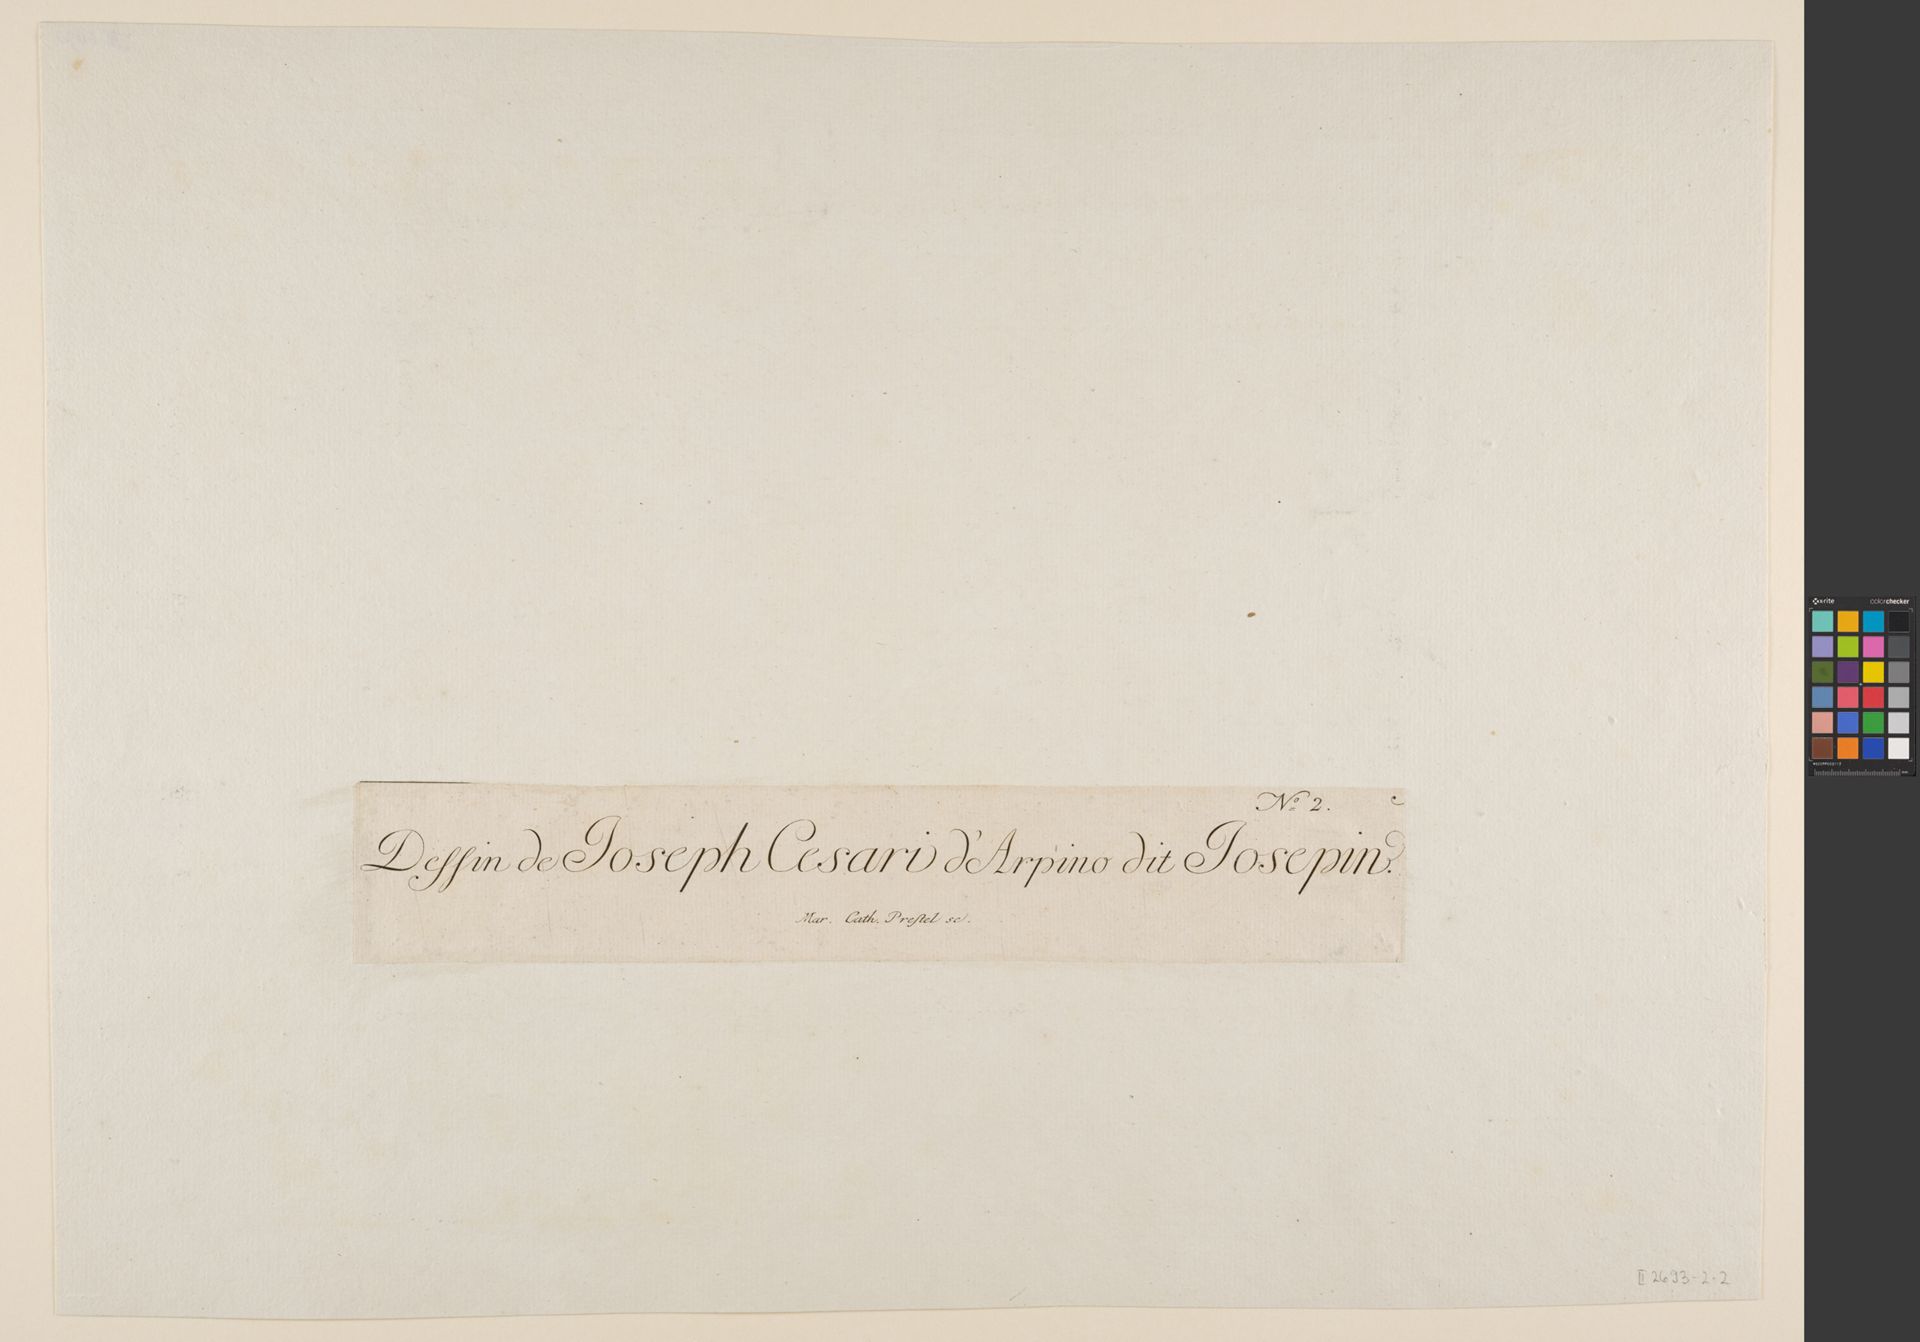 No 2.
Dessin de Joseph Cesari d'Arpino dit Josepin.
Mar. Cath. Prestel sc.
x-rite colorchecker
II 2693-2-2